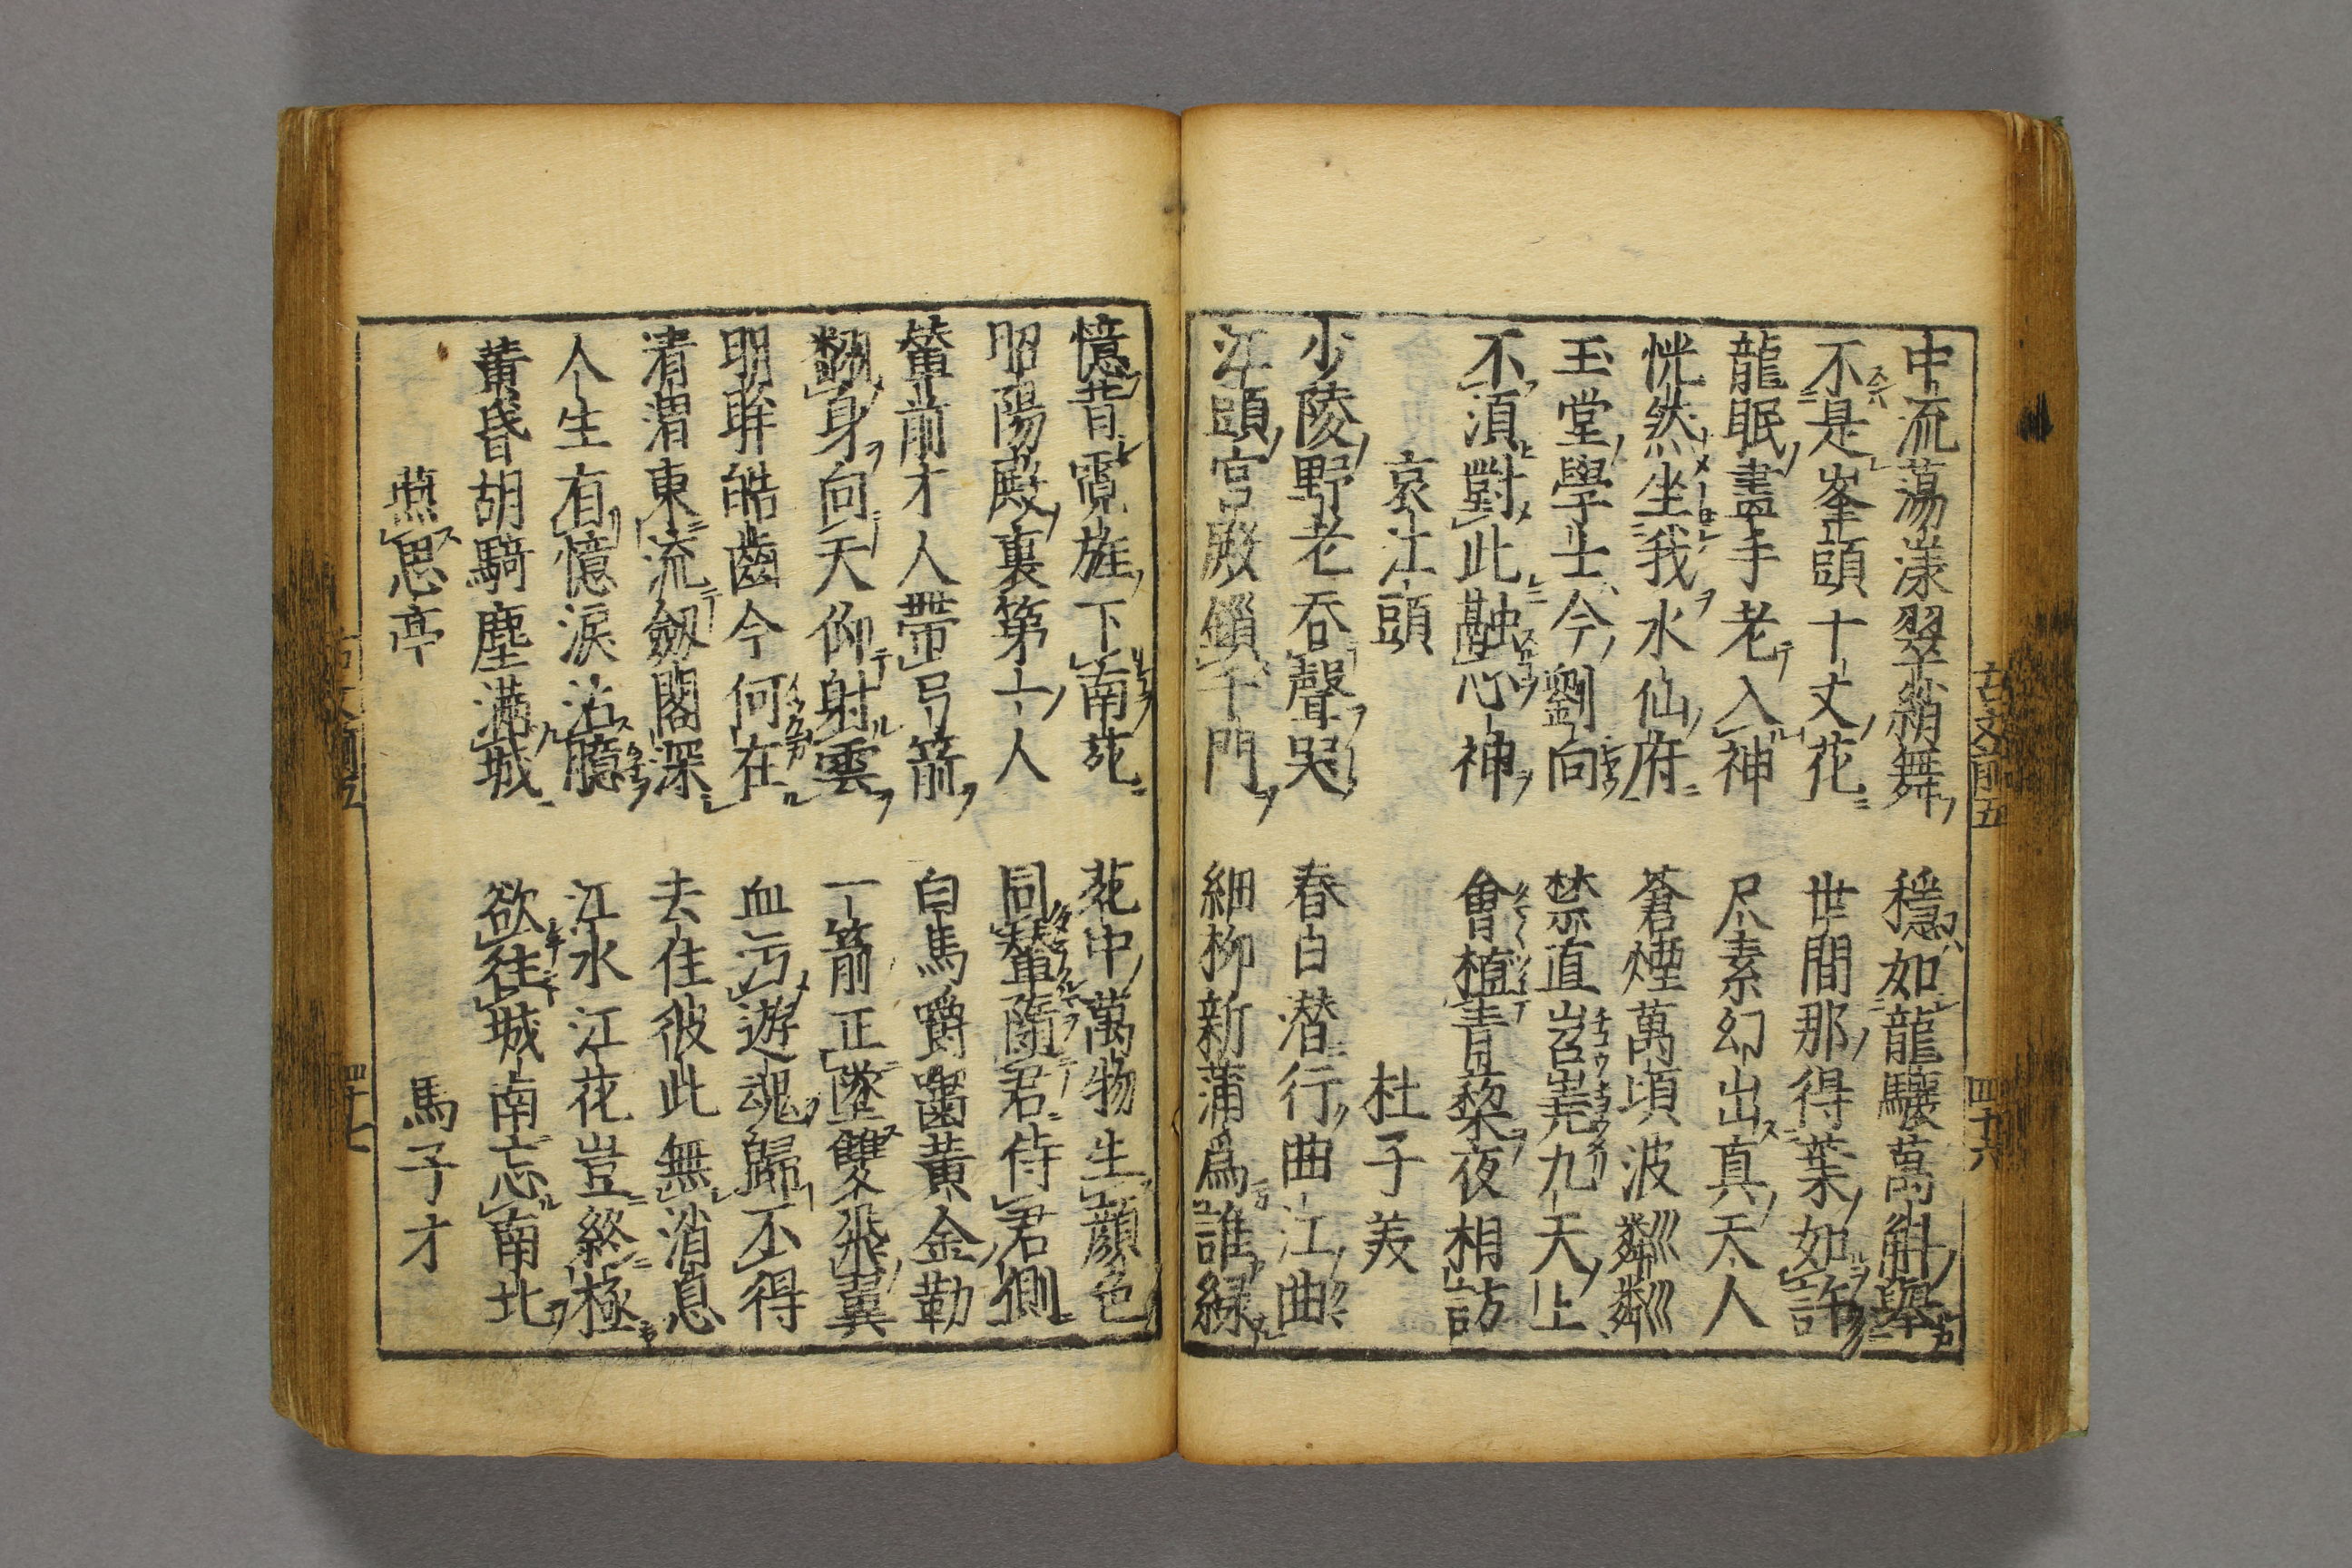 古文前五 四十六
中流蕩漾翠綃舞 穩如龍驤萬斛舉
不是峯頭十丈花 世間那得葉如許
龍眠畫手老入神 尺素幻出真天人
恍然坐我水仙府 蒼煙萬頃波粼粼
玉堂學士今劉向 禁直岧嶤九天上
不須對此融心神 會植青藜夜相訪
哀江頭 杜子美
少陵野老吞聲哭 春白潜行曲江曲
江頭宮殿鎖千門 細柳新蒲爲誰緑
憶昔霓旌下南苑 苑中萬物生顔色
昭陽殿裏第一人 同輦隨君侍君側
輦前才人帶弓箭 白馬嚼齧黄金勒
翻身向天仰射雲 一箭正墜雙飛翼
明眸皓齒今何在 血汚遊魂歸不得
清渭東流劔閣深 去住彼此無消息
人生有憶淚沾臆 江水江花豈終極
黄昏胡騎塵滿城 欲往城南忘南北
燕思亭 馬子才
四十七